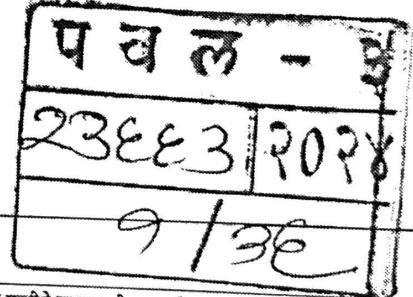 प व ल - ३
२३६६३ २०२४
१/३६